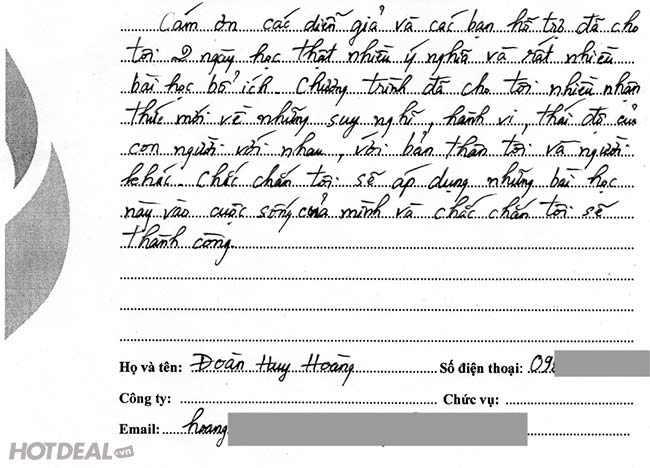 Cám ơn các diễn giả và các bạn hỗ trợ đã cho
tôi 2 ngày học thật nhiều ý nghĩa và rất nhiều
bài học bổ ích. Chương trình đã cho tôi nhiều nhận
thức mới về những suy nghĩ, hành vi, thái độ của
con người với nhau, với bản thân tôi và người
khác. Chắc chắn tôi sẽ áp dụng những bài học
này vào cuộc sống của mình và chắc chắn tôi sẽ
thành công.
Họ và tên: Đoàn Huy Hoàng Số điện thoại: 098
Công ty: Chức vụ:
Email: hoang
HOTDEAL.vn